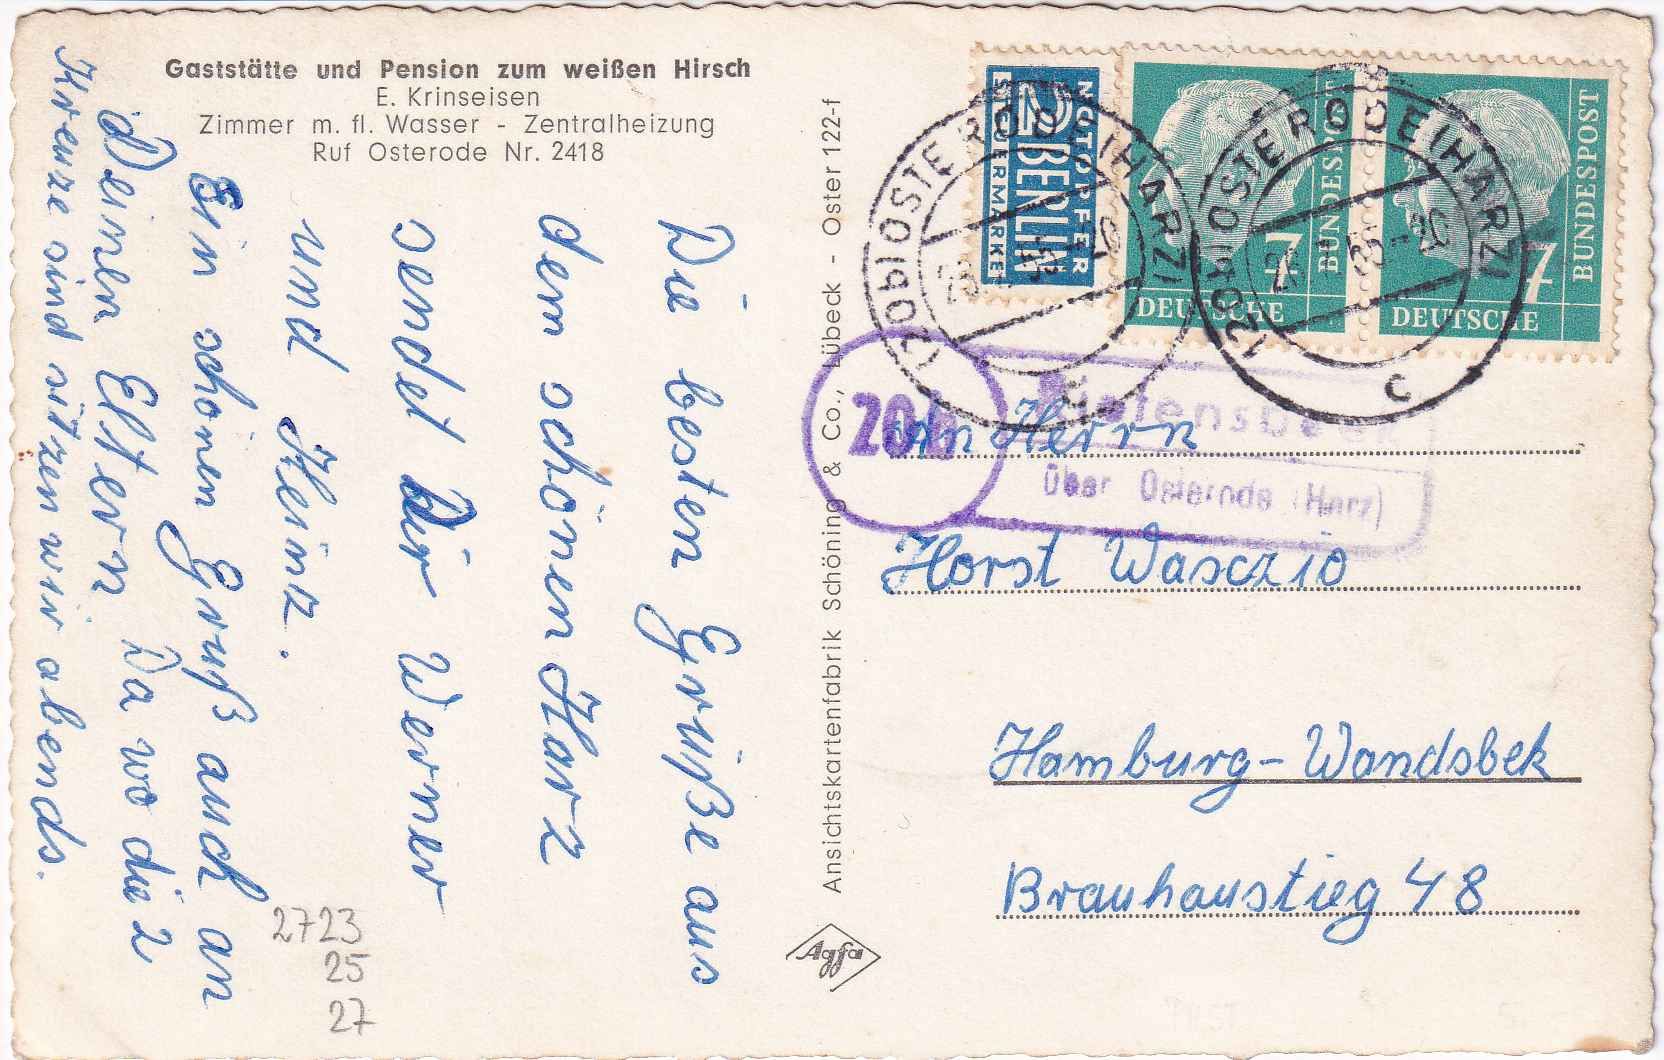 Gaststätte und Pension zum weißen Hirsch
E. Krinseisen
Zimmer m. fl. Wasser - Zentralheizung
Ruf Osterode Nr. 2418
Die besten Grüße aus
dem schönen Harz
sendet Dir Werner
und Heinz.
Ein schönen Gruß auch an
Deinen Eltern Da wo die 2
Kreuze sind sitzen wir abends.
2723
25
27
Ansichtskartenfabrik Schöning & Co., Lübeck - Oster 122-f
Agfa
NOTOPFER
2 BERLIN
STEUERMARKE
7
DEUTSCHE
BUNDESPOST
7
DEUTSCHE
BUNDESPOST
(20b) OSTERODE (HARZ)
c
(20b) OSTERODE (HARZ)
c
20b
über Osterode (Harz)
An Herrn
Horst Wasczio
Hamburg-Wandsbek
Brauhaustieg 48